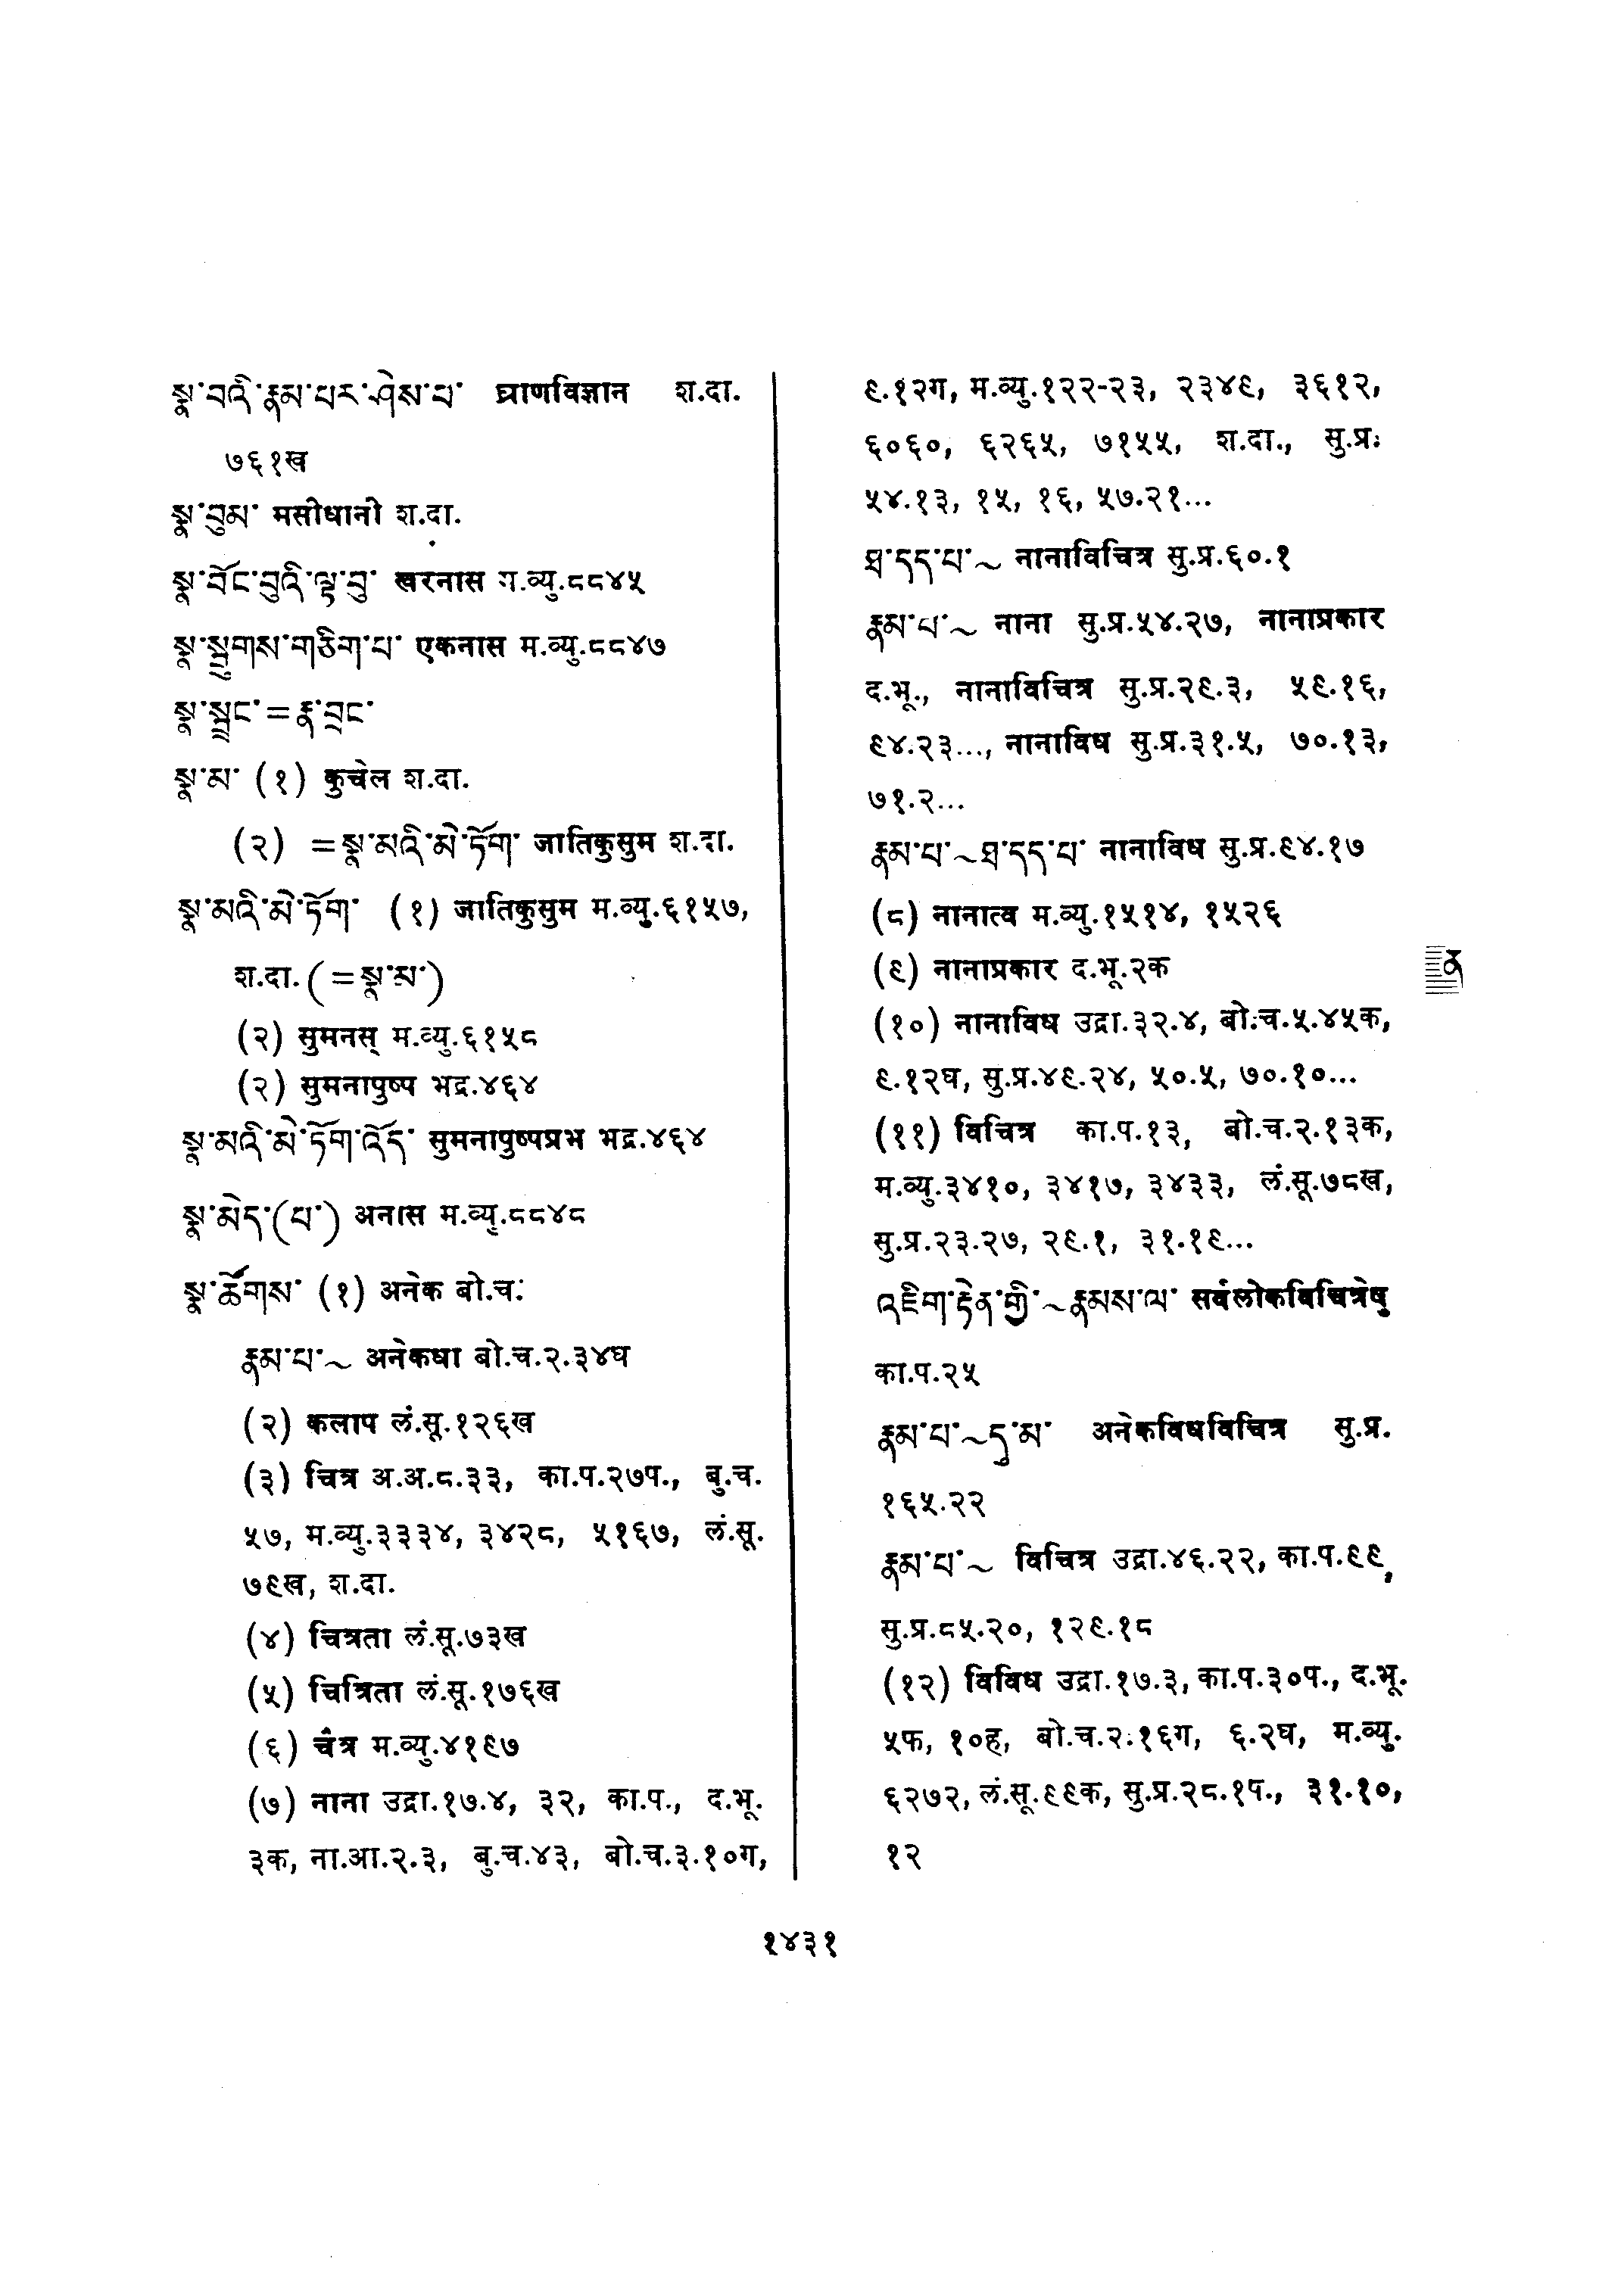 སྣ་བའི་རྣམ་པར་ཤེས་པ་ घ्राणविज्ञान श.दा.
७६१ख
སྣ་བུམ་ मसीधानी श.दा.
སྣ་བོང་བུའི་ལྟ་བུ་ खरनास म.व्यु.८८४५
སྣ་སྦུགས་གཅིག་པ་ एकनास म.व्यु.८८४७
སྣ་སྦྲང་=རྣ་བྲང་
སྣ་མ་ (१) कुचेल श.दा.
(२) =སྣ་མའི་མེ་ཏོག་ जातिकुसुम श.दा.
སྣ་མའི་མེ་ཏོག་ (१) जातिकुसुम म.व्यु.६१५७,
श.दा.(=སྣ་མ་)
(२) सुमनस् म.व्यु.६१५८
(२) सुमनापुष्प भद्र.४६४
སྣ་མའི་མེ་ཏོག་འོད་ सुमनापुष्पप्रभ भद्र.४६४
སྣ་མེད་(པ་) अनास म.व्यु.८८४८
སྣ་ཚོགས་ (१) अनेक बो.च.
རྣམ་པ་~ अनेकधा बो.च.२.३४घ
(२) कलाप लं.सू.१२६ख
(३) चित्र अ.अ.८.३३, का.प.२७प., बु.च.
५७, म.व्यु.३३३४, ३४२८, ५१६७, लं.सू.
७९ख, श.दा.
(४) चित्रता लं.सू.७३ख
(५) चित्रिता लं.सू.१७६ख
(६) चैत्र म.व्यु.४१९७
(७) नाना उद्रा.१७.४, ३२, का.प., द.भू.
३क, ना.आ.२.३, बु.च.४३, बो.च.३.१०ग,
९.१२ग, म.व्यु.१२२-२३, २३४९, ३६१२,
६०६०, ६२६५, ७१५५, श.दा., सु.प्र.
५४.१३, १५, १६, ५७.२१...
ཐ་དད་པ་~ नानाविचित्र सु.प्र.६०.१
རྣམ་པ་~ नाना सु.प्र.५४.२७, नानाप्रकार
द.भू., नानाविचित्र सु.प्र.२९.३, ५९.१६,
९४.२३..., नानाविध सु.प्र.३१.५, ७०.१३,
७१.२...
རྣམ་པ་~ཐ་དད་པ་ नानाविध सु.प्र.९४.१७
(८) नानात्व म.व्यु.१५१४, १५२६
(९) नानाप्रकार द.भू.२क
(१०) नानाविध उद्रा.३२.४, बो.च.५.४५क,
९.१२घ, सु.प्र.४९.२४, ५०.५, ७०.१०...
(११) विचित्र का.प.१३, बो.च.२.१३क,
म.व्यु.३४१०, ३४१७, ३४३३, लं.सू.७८ख,
सु.प्र.२३.२७, २९.१, ३१.१९...
འཇིག་རྟེན་གྱི་~རྣམས་ལ་ सर्वलोकविचित्रेषु
का.प.२५
རྣམ་པ་~དུ་མ་ अनेकविधविचित्र सु.प्र.
१६५.२२
རྣམ་པ་~ विचित्र उद्रा.४६.२२, का.प.९९,
सु.प्र.८५.२०, १२९.१८
(१२) विविध उद्रा.१७.३, का.प.३०प., द.भू.
५फ, १०ह, बो.च.२.१६ग, ६.२घ, म.व्यु.
६२७२, लं.सू.९९क, सु.प्र.२८.१प., ३१.१०,
१२
ན
१४३१